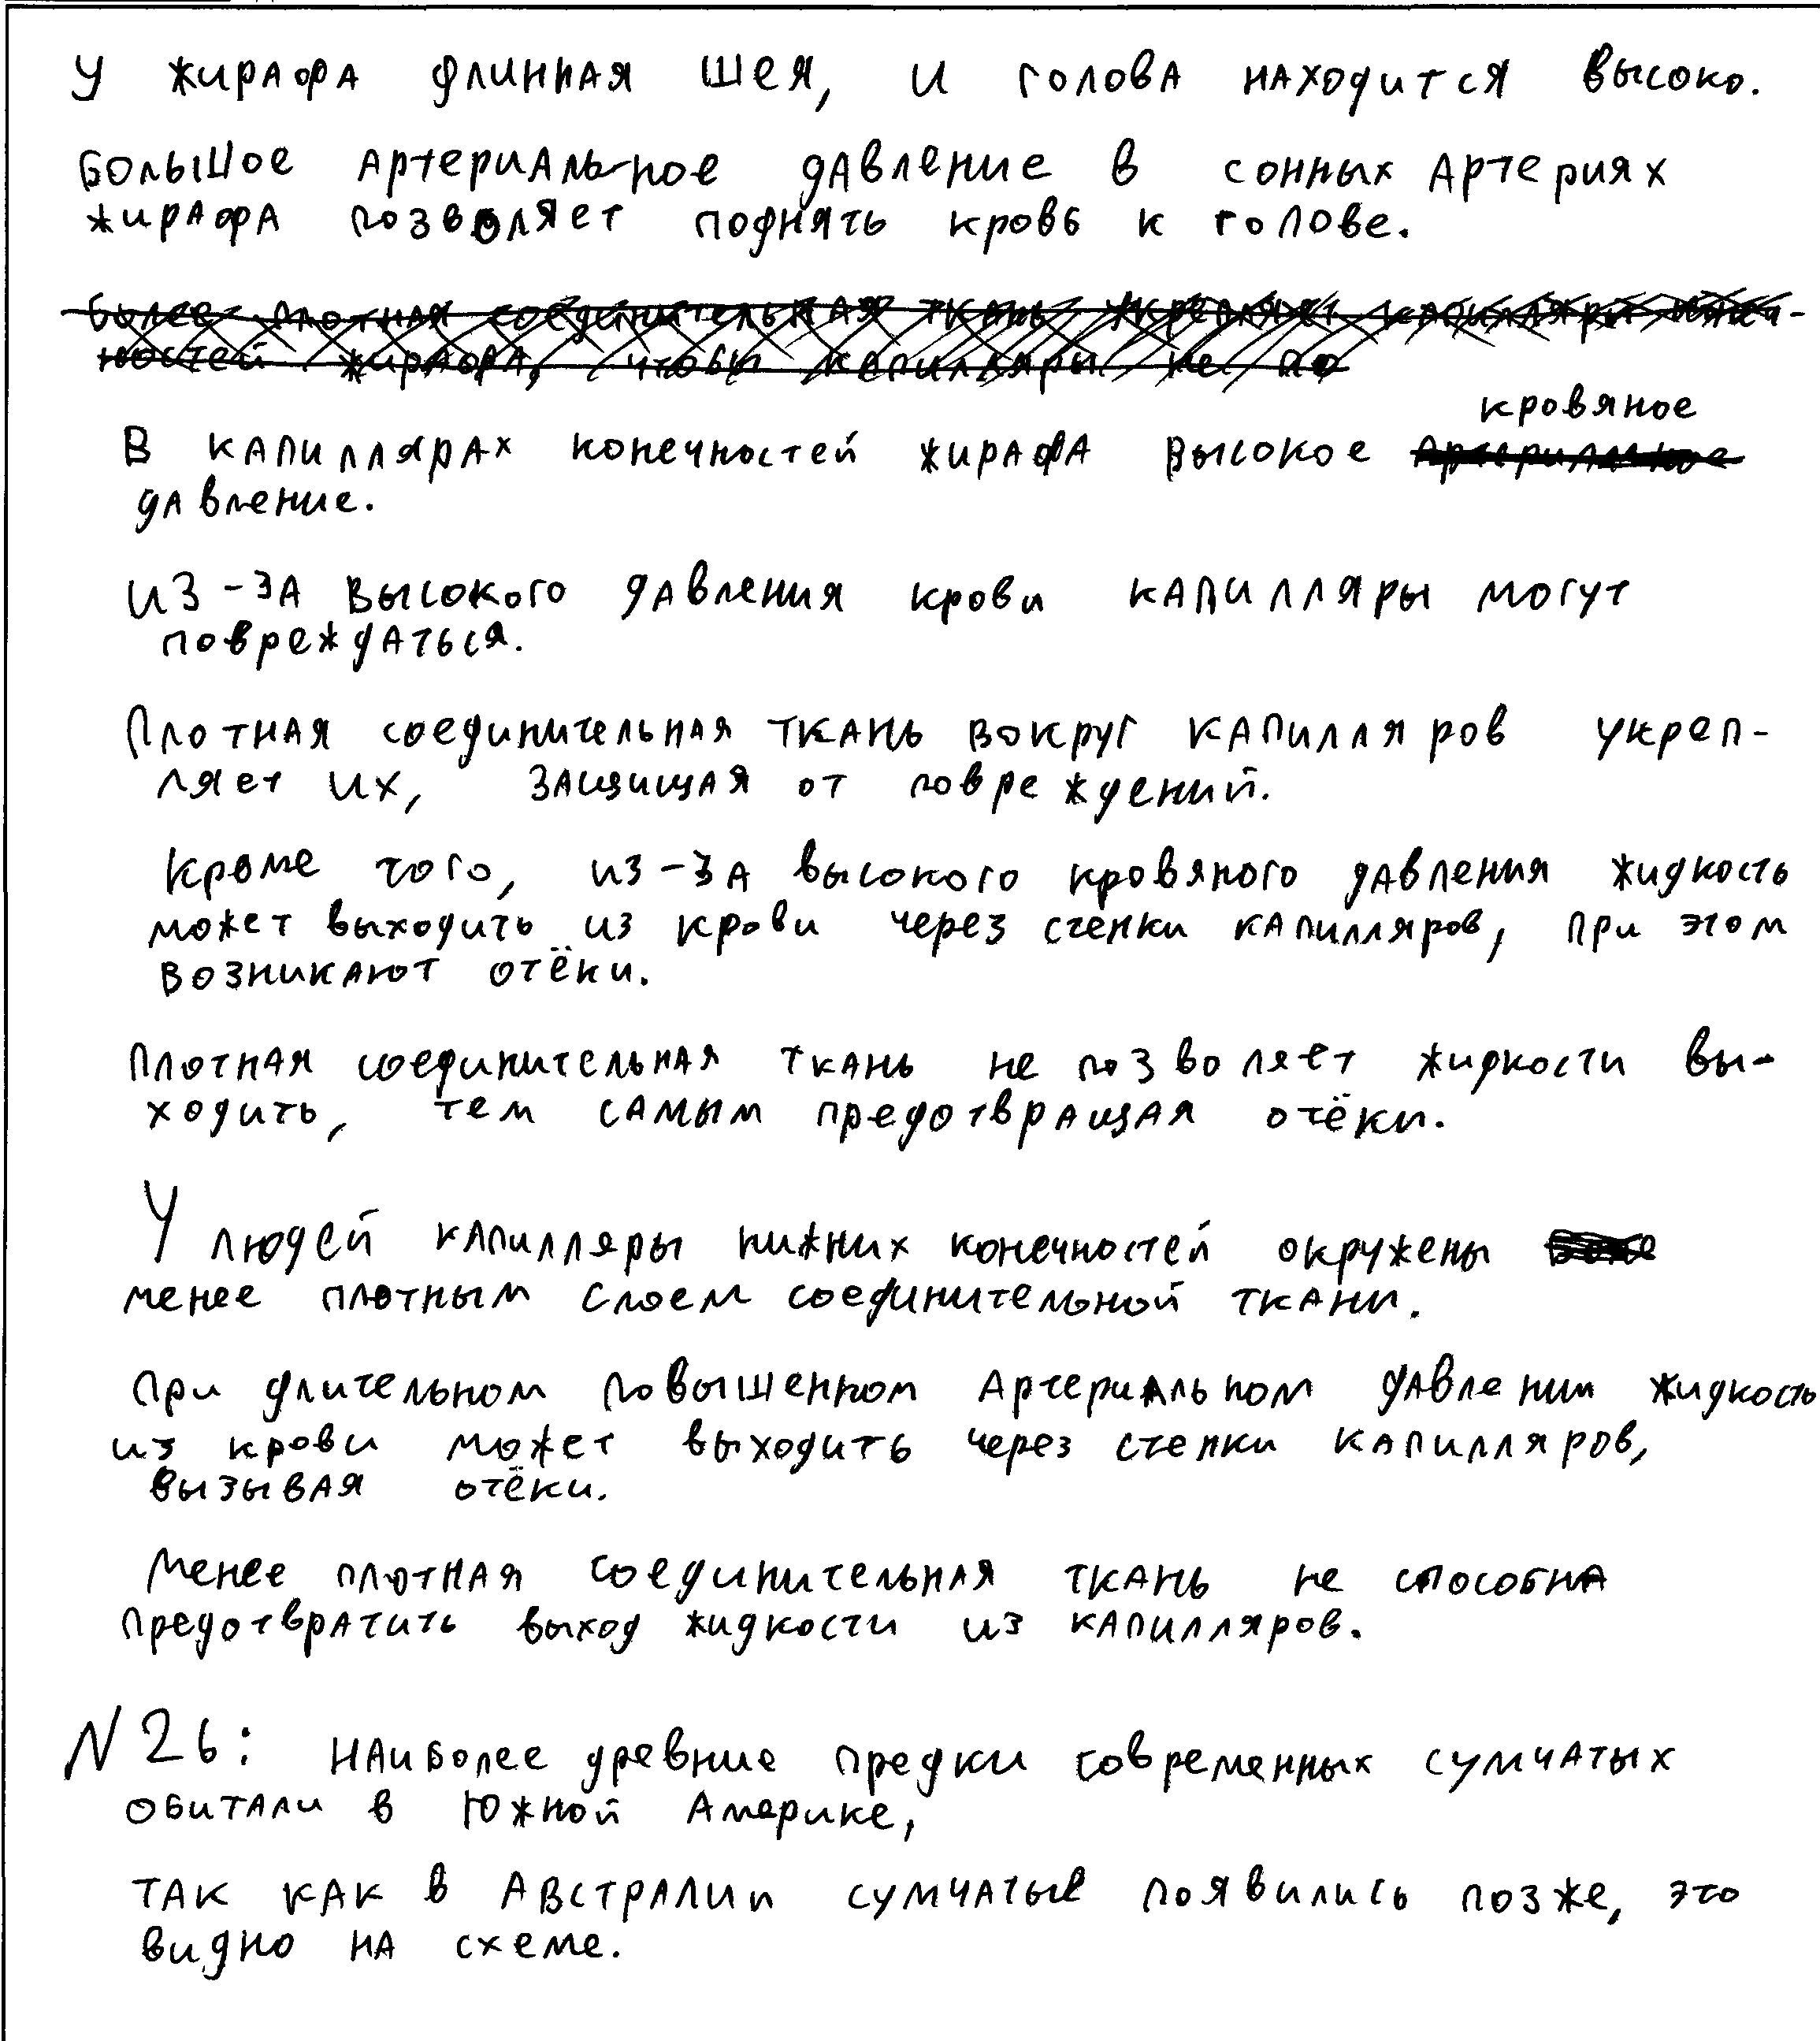 У жирафа длинная шея, и голова находится высоко.
Большое артериальное давление в сонных артериях
жирафа позволяет поднять кровь к голове.
Более плотная соединительная ткань укрепляет капилляры конеч-
ностей жирафа, чтобы капилляры не по
кровяное
В капиллярах конечностей жирафа высокое артериальное
давление.
Из-за высокого давления крови капилляры могут
повреждаться.
Плотная соединительная ткань вокруг капилляров укреп-
ляет их, защищая от повреждений.
Кроме того, из-за высокого кровяного давления жидкость
может выходить из крови через стенки капилляров, при этом
возникают отёки.
Плотная соединительная ткань не позволяет жидкости вы-
ходить, тем самым предотвращая отёки.
У людей капилляры нижних конечностей окружены
менее плотным слоем соединительной ткани.
При длительном повышенном артериальном давлении жидкость
из крови может выходить через стенки капилляров,
вызывая отёки.
Менее плотная соединительная ткань не способна
предотвратить выход жидкости из капилляров.
N26: Наиболее древние предки современных сумчатых
обитали в Южной Америке,
так как в Австралии сумчатые появились позже, это
видно на схеме.